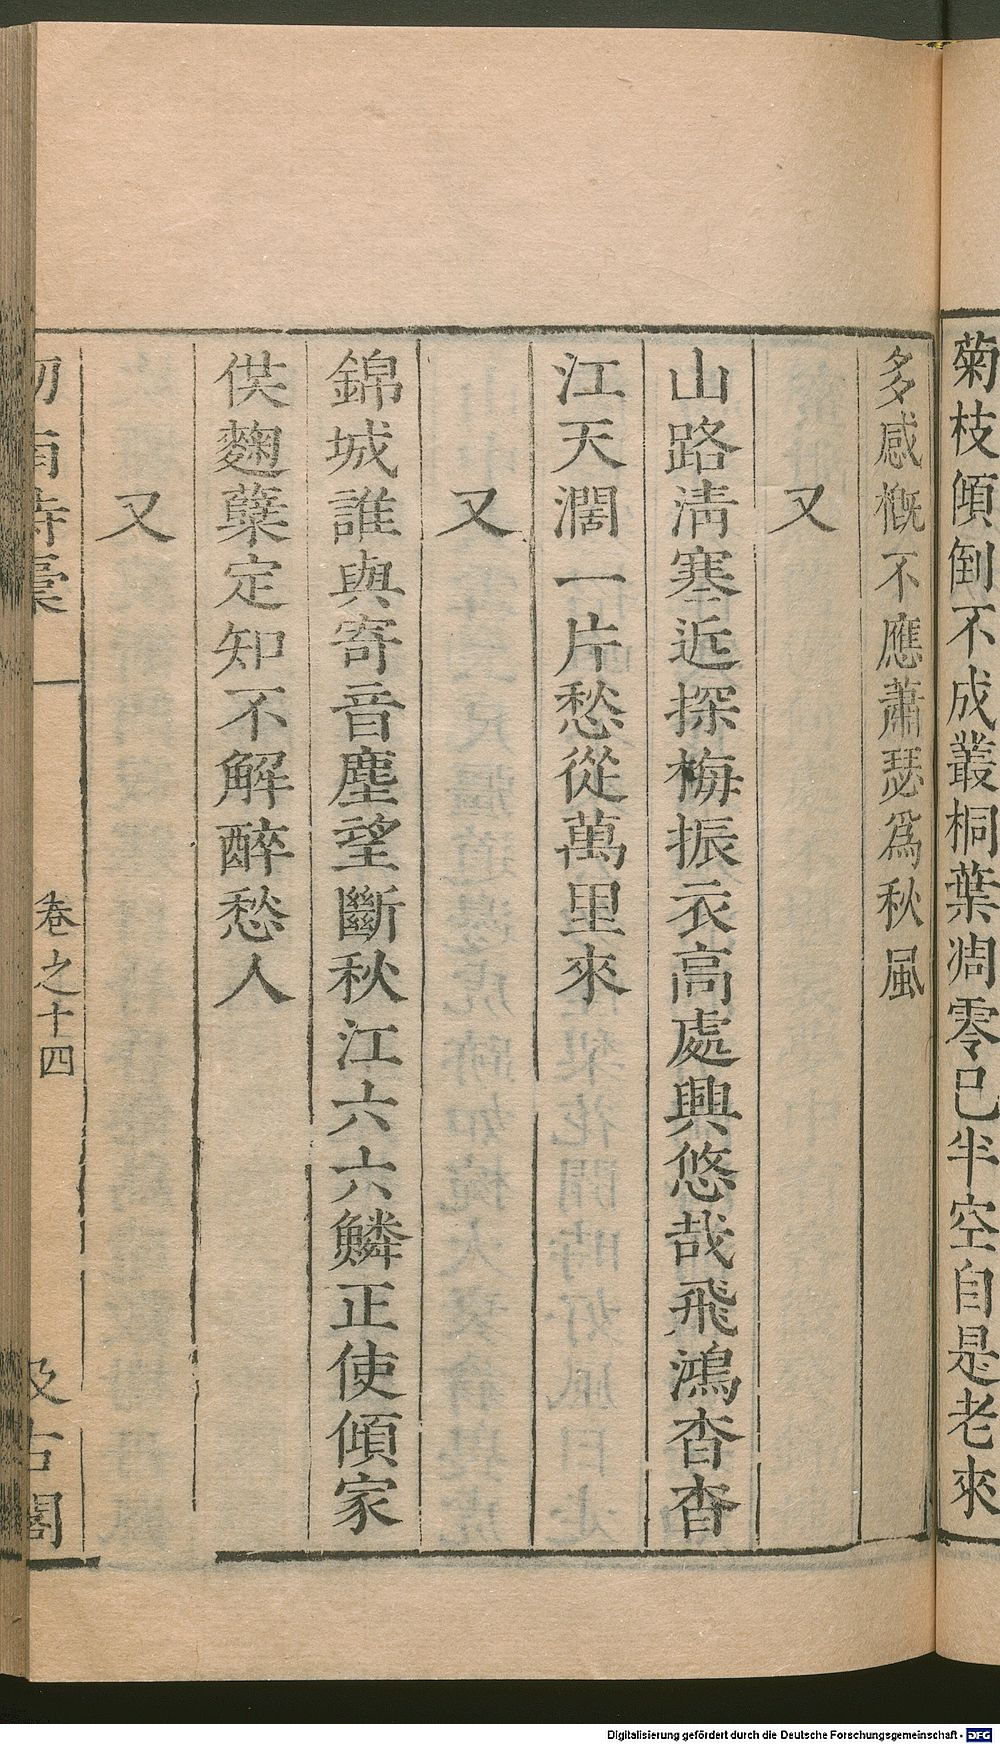 菊枝傾倒不成叢桐葉凋零已半空自是老來
多感慨不應蕭瑟爲秋風
又
山路清寒近探梅振衣高處興悠哉飛鴻杳杳
江天闊一片愁從萬里來
又
錦城誰與寄音塵望斷秋江六六鱗正使傾家
供麴蘖定知不解醉愁人
又
劒南詩稾
卷之十四
汲古閣
Digitalisierung gefördert durch die Deutsche Forschungsgemeinschaft - DFG